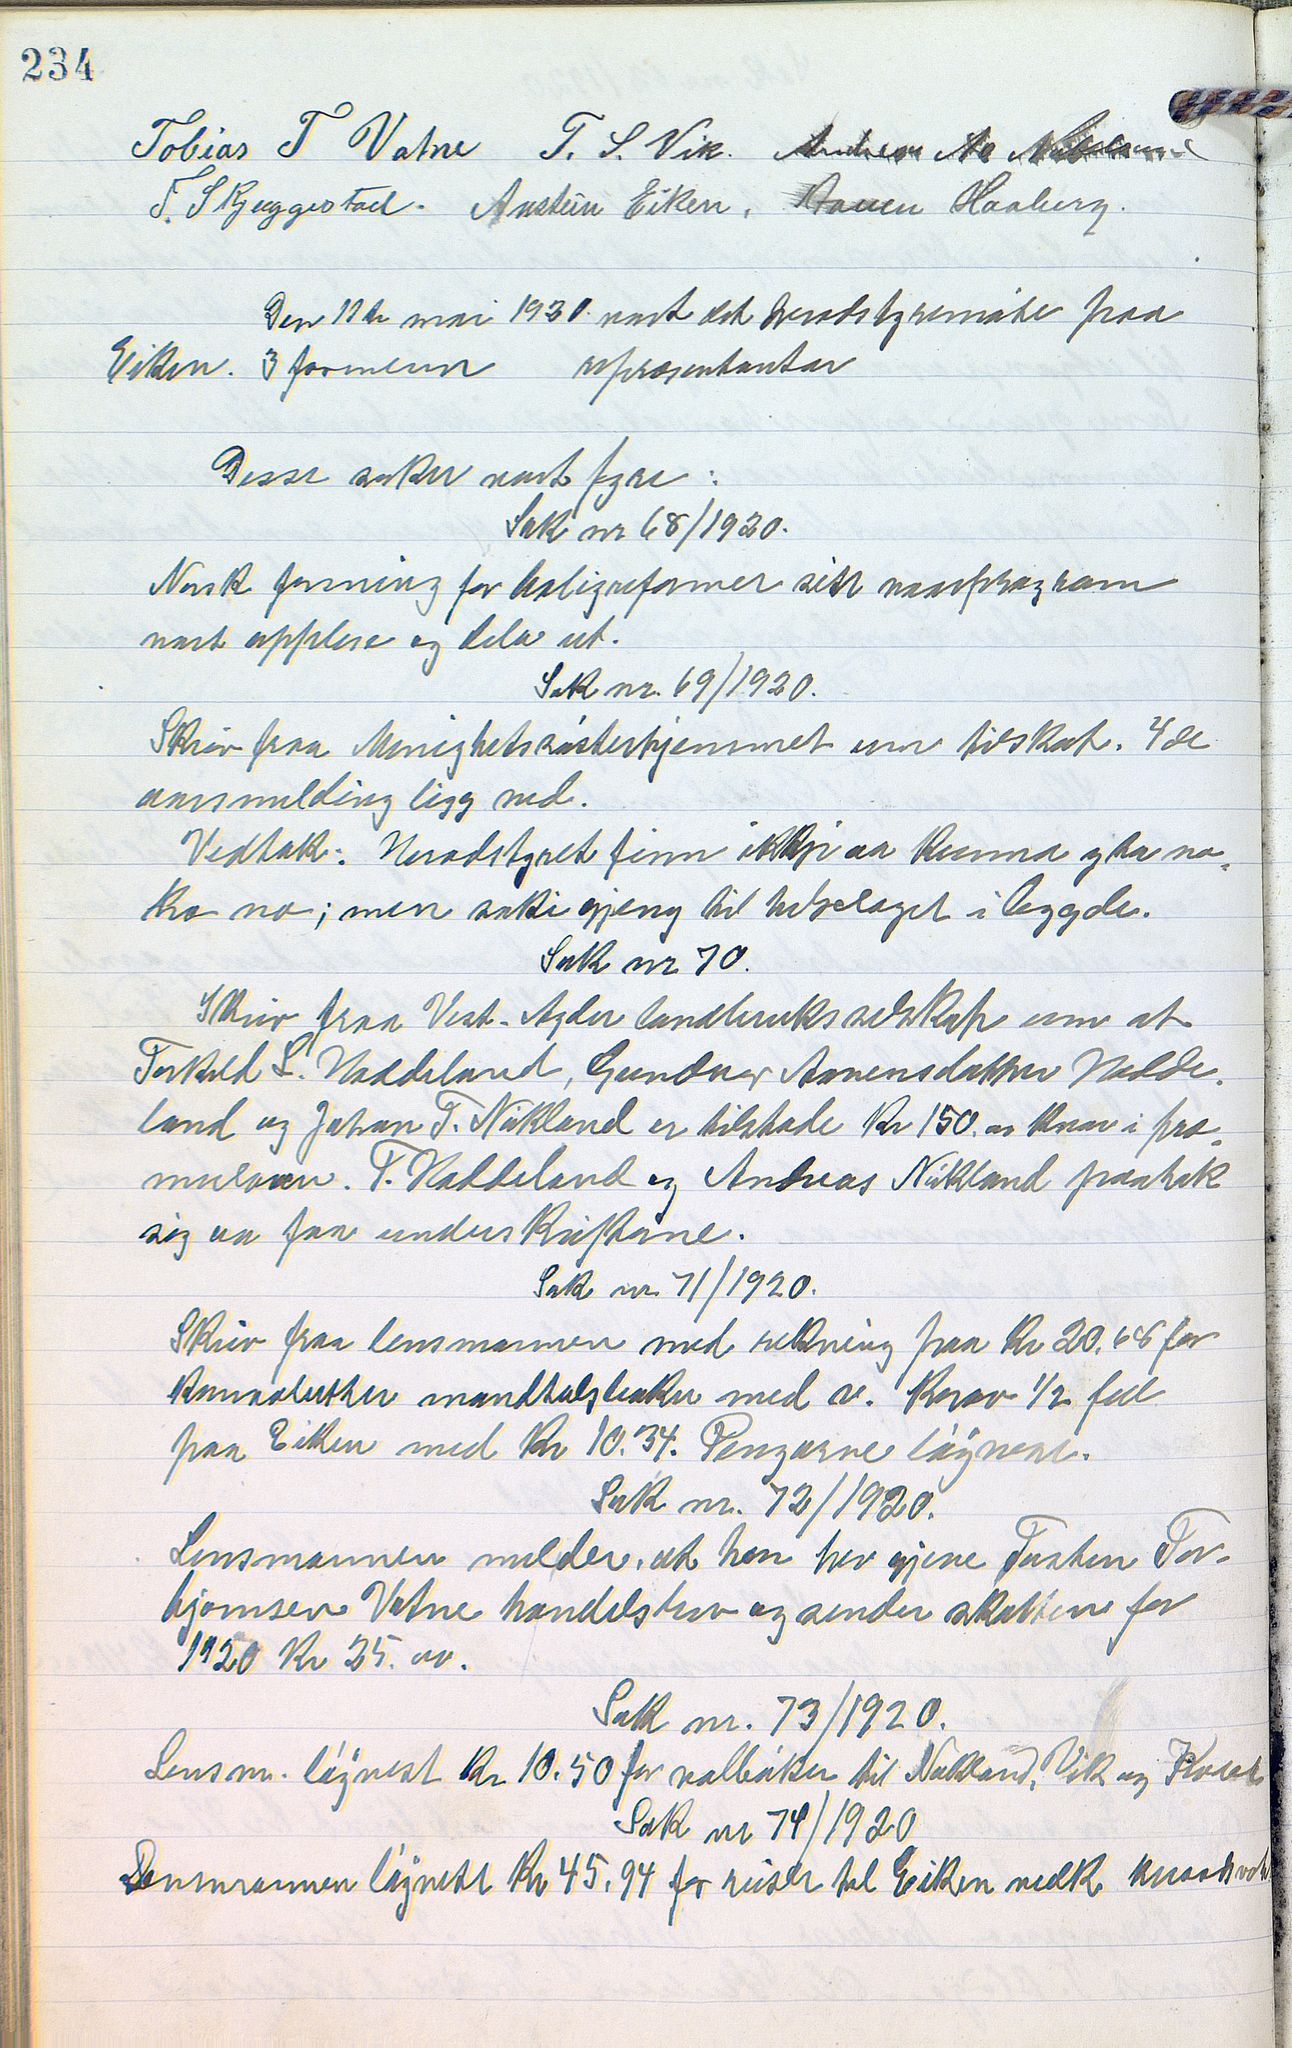 234
Tobias T Vatne T. S. Vik.
T. Skjeggestad. Anstein Eiken, Haaberg.
Den 11te mai 1920 vart det heradstyremöte paa
Eiken. 3 formenn representantar
Desse saker vart fyre:
Sak nr 68/1920.
Norsk forening for boligreformer sitt
vart upplese og dela ut.
Sak nr. 69/1920.
Skriv fraa Menighetssösterhjemmet um tilskot. 4de
aarsmelding ligg ved.
Vedtak: Heradstyret finn ikkje aa kunna yta no-
ko no; men saki gjeng til helselaget i bygde.
Sak nr 70.
Skriv fraa Vest-Agder landbruksselskap um at
Torkeld S. Haddeland, Gundvor Aanensdatter Hadde-
land og Johan T. Nökland er tilstade Kr 150. av kvar i pre-
mielaan. T. Haddeland og Andreas Nökland paatek
sig aa faa underskriftene.
Sak nr. 71/1920.
Skriv fraa lensmannen med rekning paa Kr 20.68 for
mandtalsbøker med v. Krav 1/2 fell
paa Eiken med Kr 10.34. Pengarne löyvest.
Sak nr. 72/1920.
Lensmannen melder, at han hev gjeve Torsten Tor-
bjornsen Vatne handelsbrev og sender skatten for
1920 Kr 25. oo.
Sak nr. 73/1920.
Lensm. löyvest Kr 10.50 for valböker til Nökland, Vik og
Sak nr 74/1920
Lensmannen löyvest Kr 45.94 for reiser til Eiken vedk.